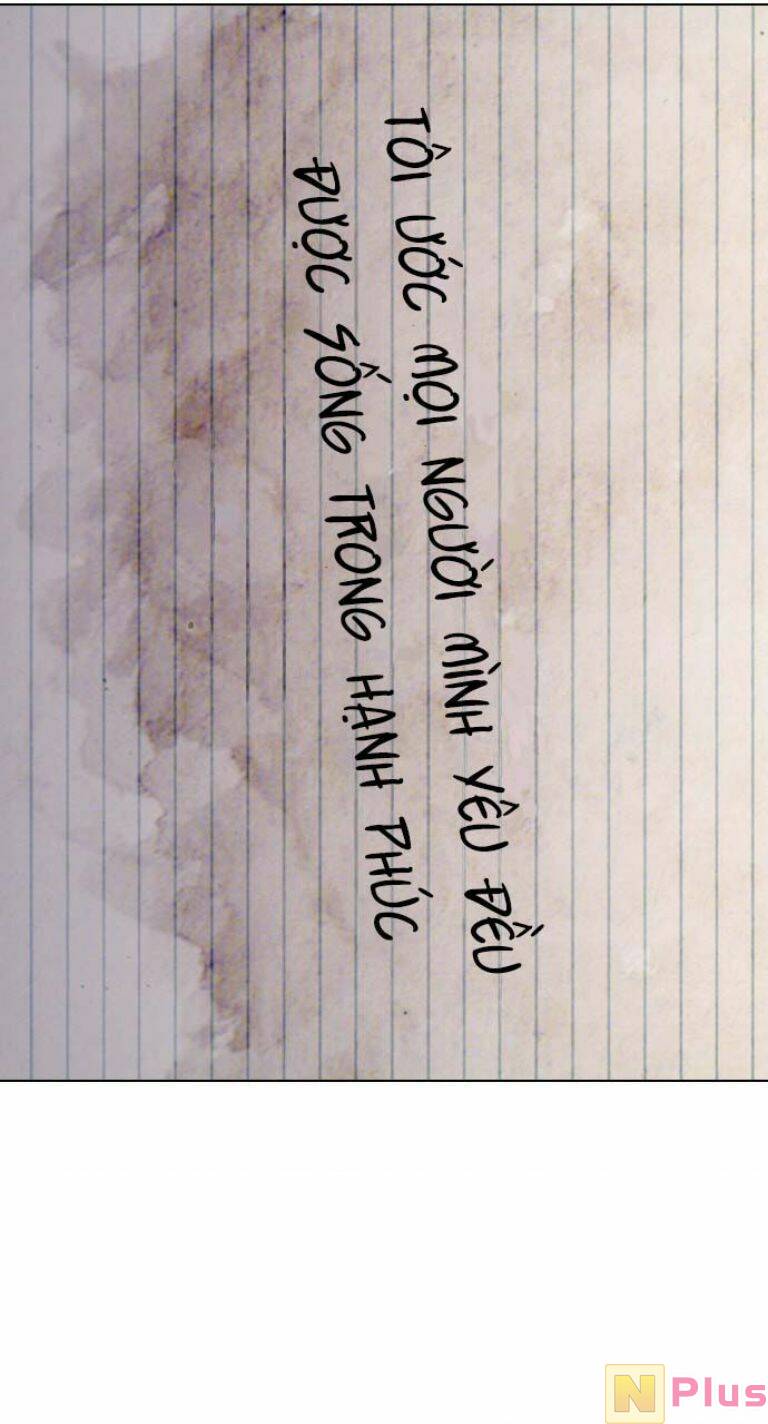 TÔI ƯỚC MỌI NGƯỜI MÌNH YÊU ĐỀU
ĐƯỢC SỐNG TRONG HẠNH PHÚC
N Plus